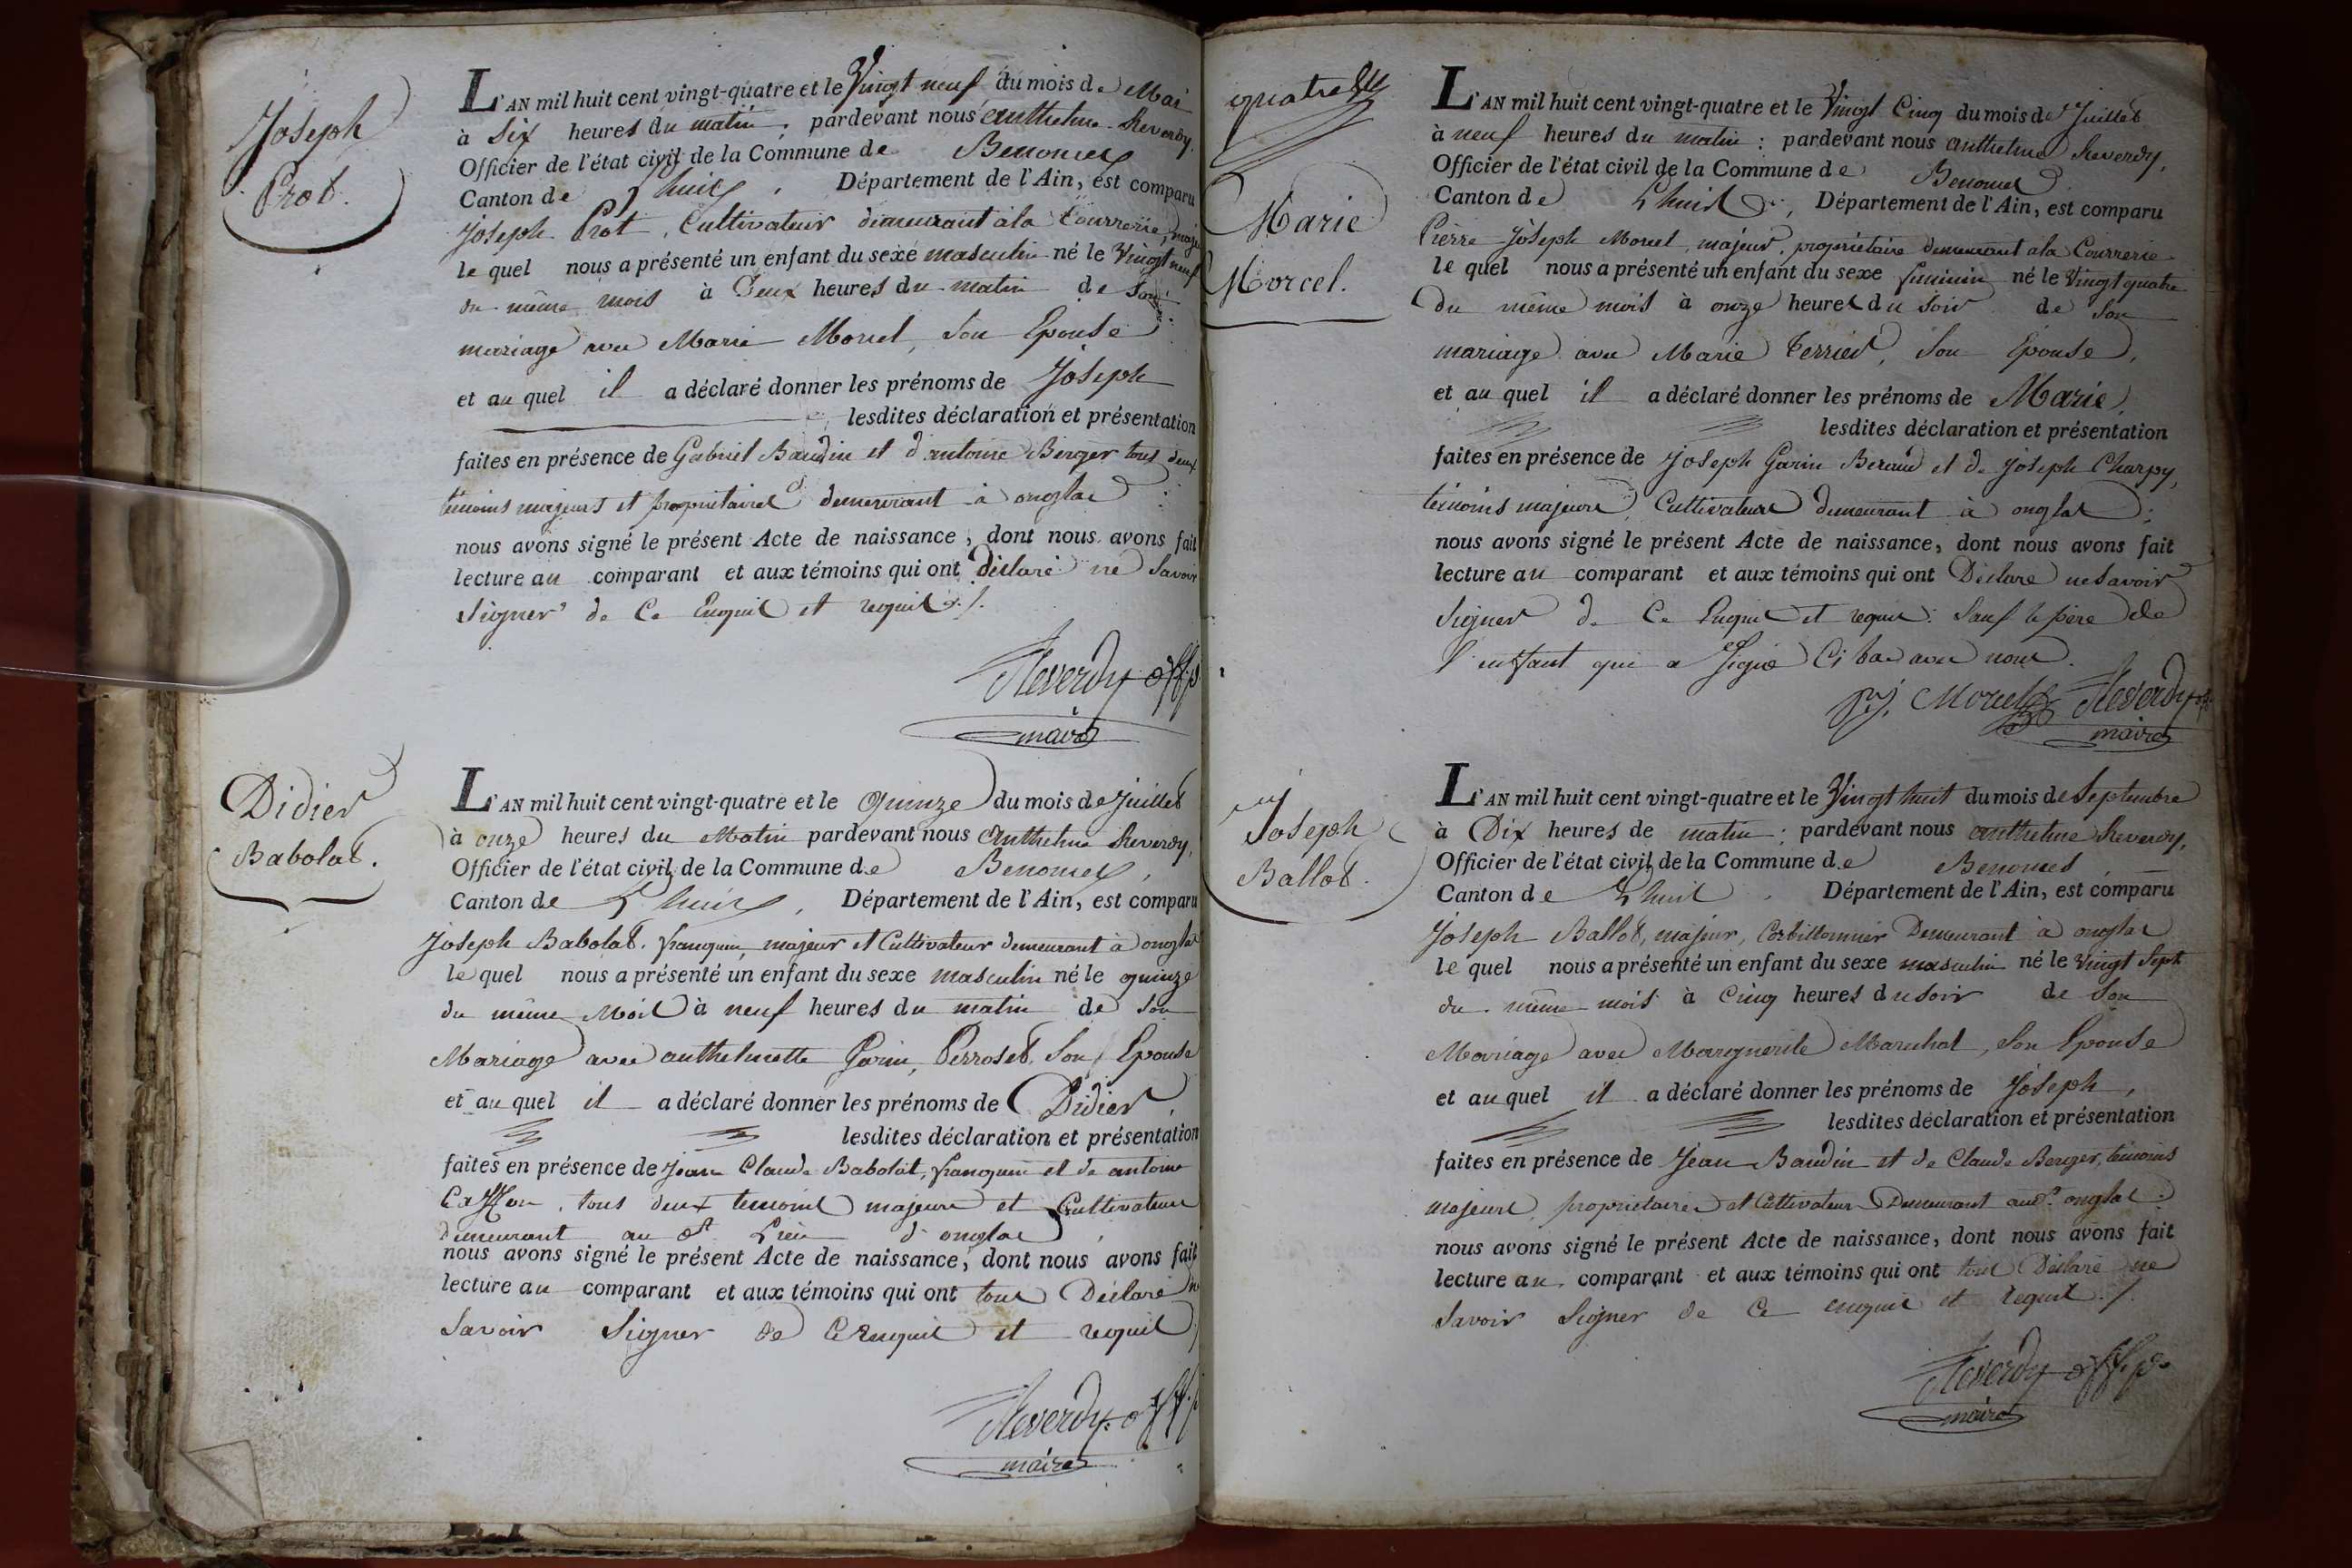 Joseph
Prot.
L'AN mil huit cent vingt-quatre et le Vingt neuf du mois de Mai
à Six heures du matin, pardevant nous anthelme Reverdy,
Officier de l'état civil de la Commune de Benonces
Canton de Lhuis, Département de l'Ain, est comparu
Joseph Prot, Cultivateur demeurant à la Courrerie,
le quel nous a présenté un enfant du sexe masculin né le Vingt neuf
du même mois à Deux heures du matin de Son
mariage avec Marie Morcel, Son Epouse
et au quel il a déclaré donner les prénoms de Joseph
lesdites déclaration et présentation
faites en présence de Gabriel Baudin et d'antoine Berger tous deux
témoins majeurs et propriétaires demeurant à onglas
nous avons signé le présent Acte de naissance, dont nous avons fait
lecture au comparant et aux témoins qui ont Déclaré ne Savoir
Signer de Ce Enquis et requis./.
Reverdy off.
maire
Didier
Babolat.
L'AN mil huit cent vingt-quatre et le Quinze du mois de Juillet
à onze heures du Matin pardevant nous Anthelme Reverdy,
Officier de l'état civil de la Commune de Benonces,
Canton de Lhuis, Département de l'Ain, est comparu
Joseph Babolat, franquin, majeur et Cultivateur demeurant à onglas
le quel nous a présenté un enfant du sexe masculin né le quinze
du même Mois à neuf heures du matin de Son
Mariage avec anthelmette Garin, Perroset, Son Epouse
et au quel il a déclaré donner les prénoms de Didier,
lesdites déclaration et présentation
faites en présence de Jean Claude Babolat, franquin et de antoine
tous deux temoins majeurs et Cultivateurs
demeurant au dt Lieu d'onglas,
nous avons signé le présent Acte de naissance, dont nous avons fait
lecture au comparant et aux témoins qui ont tous Déclaré ne
Savoir Signer de Ce Enquis et requis
Reverdy off.
maire
quatre
Marie
Morcel.
L'AN mil huit cent vingt-quatre et le Vingt Cinq du mois de Juillet
à neuf heures du matin : pardevant nous anthelme Reverdy,
Officier de l'état civil de la Commune de Benonces
Canton de Lhuis, Département de l'Ain, est comparu
Pierre Joseph Morcel, majeur, propriétaire demeurant à la Courrerie
le quel nous a présenté un enfant du sexe féminin né le Vingt quatre
du même mois à onze heures du soir de Son
mariage avec Marie Terrier, Son Epouse,
et au quel il a déclaré donner les prénoms de Marie,
lesdites déclaration et présentation
faites en présence de Joseph Garin Beraud et de Joseph Charpy,
témoins majeurs, Cultivateurs demeurant à onglas;
nous avons signé le présent Acte de naissance, dont nous avons fait
lecture au comparant et aux témoins qui ont Déclaré ne Savoir
Signer de Ce Enquis et requis: Sauf le père de
l'enfant qui a Signé Ci bas avec nous.
pj. Morcel Reverdy off.
maire
Joseph
Ballot.
L'AN mil huit cent vingt-quatre et le Vingt huit du mois de Septembre
à Dix heures de matin : pardevant nous anthelme Reverdy,
Officier de l'état civil de la Commune de Benonces,
Canton de Lhuis, Département de l'Ain, est comparu
Joseph Ballot, majeur, Corbillonnier Demeurant à onglas
le quel nous a présenté un enfant du sexe masculin né le Vingt Sept
du même mois à Cinq heures du soir de Son
Mariage avec Marguerite Marechal, Son Epouse
et au quel il a déclaré donner les prénoms de Joseph,
lesdites déclaration et présentation
faites en présence de Jean Baudin et de Claude Berger, témoins
majeurs, propriétaires et Cultivateurs Demeurant aud.t onglas.
nous avons signé le présent Acte de naissance, dont nous avons fait
lecture au comparant et aux témoins qui ont tous Déclaré ne
Savoir Signer de Ce enquis et requis./.
Reverdy off. p.
maire